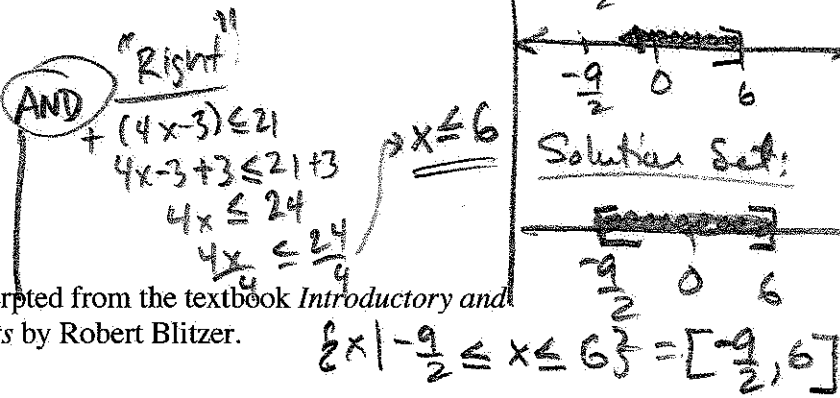 "Right"
AND
+ (4x-3) ≤ 21
4x-3+3 ≤ 21+3
4x ≤ 24
4x/4 ≤ 24/4
x ≤ 6
-9/2 0 6
Solution Set:
-9/2 0 6
rpted from the textbook Introductory and
s by Robert Blitzer.
{x|-9/2 ≤ x ≤ 6} = [-9/2, 6]